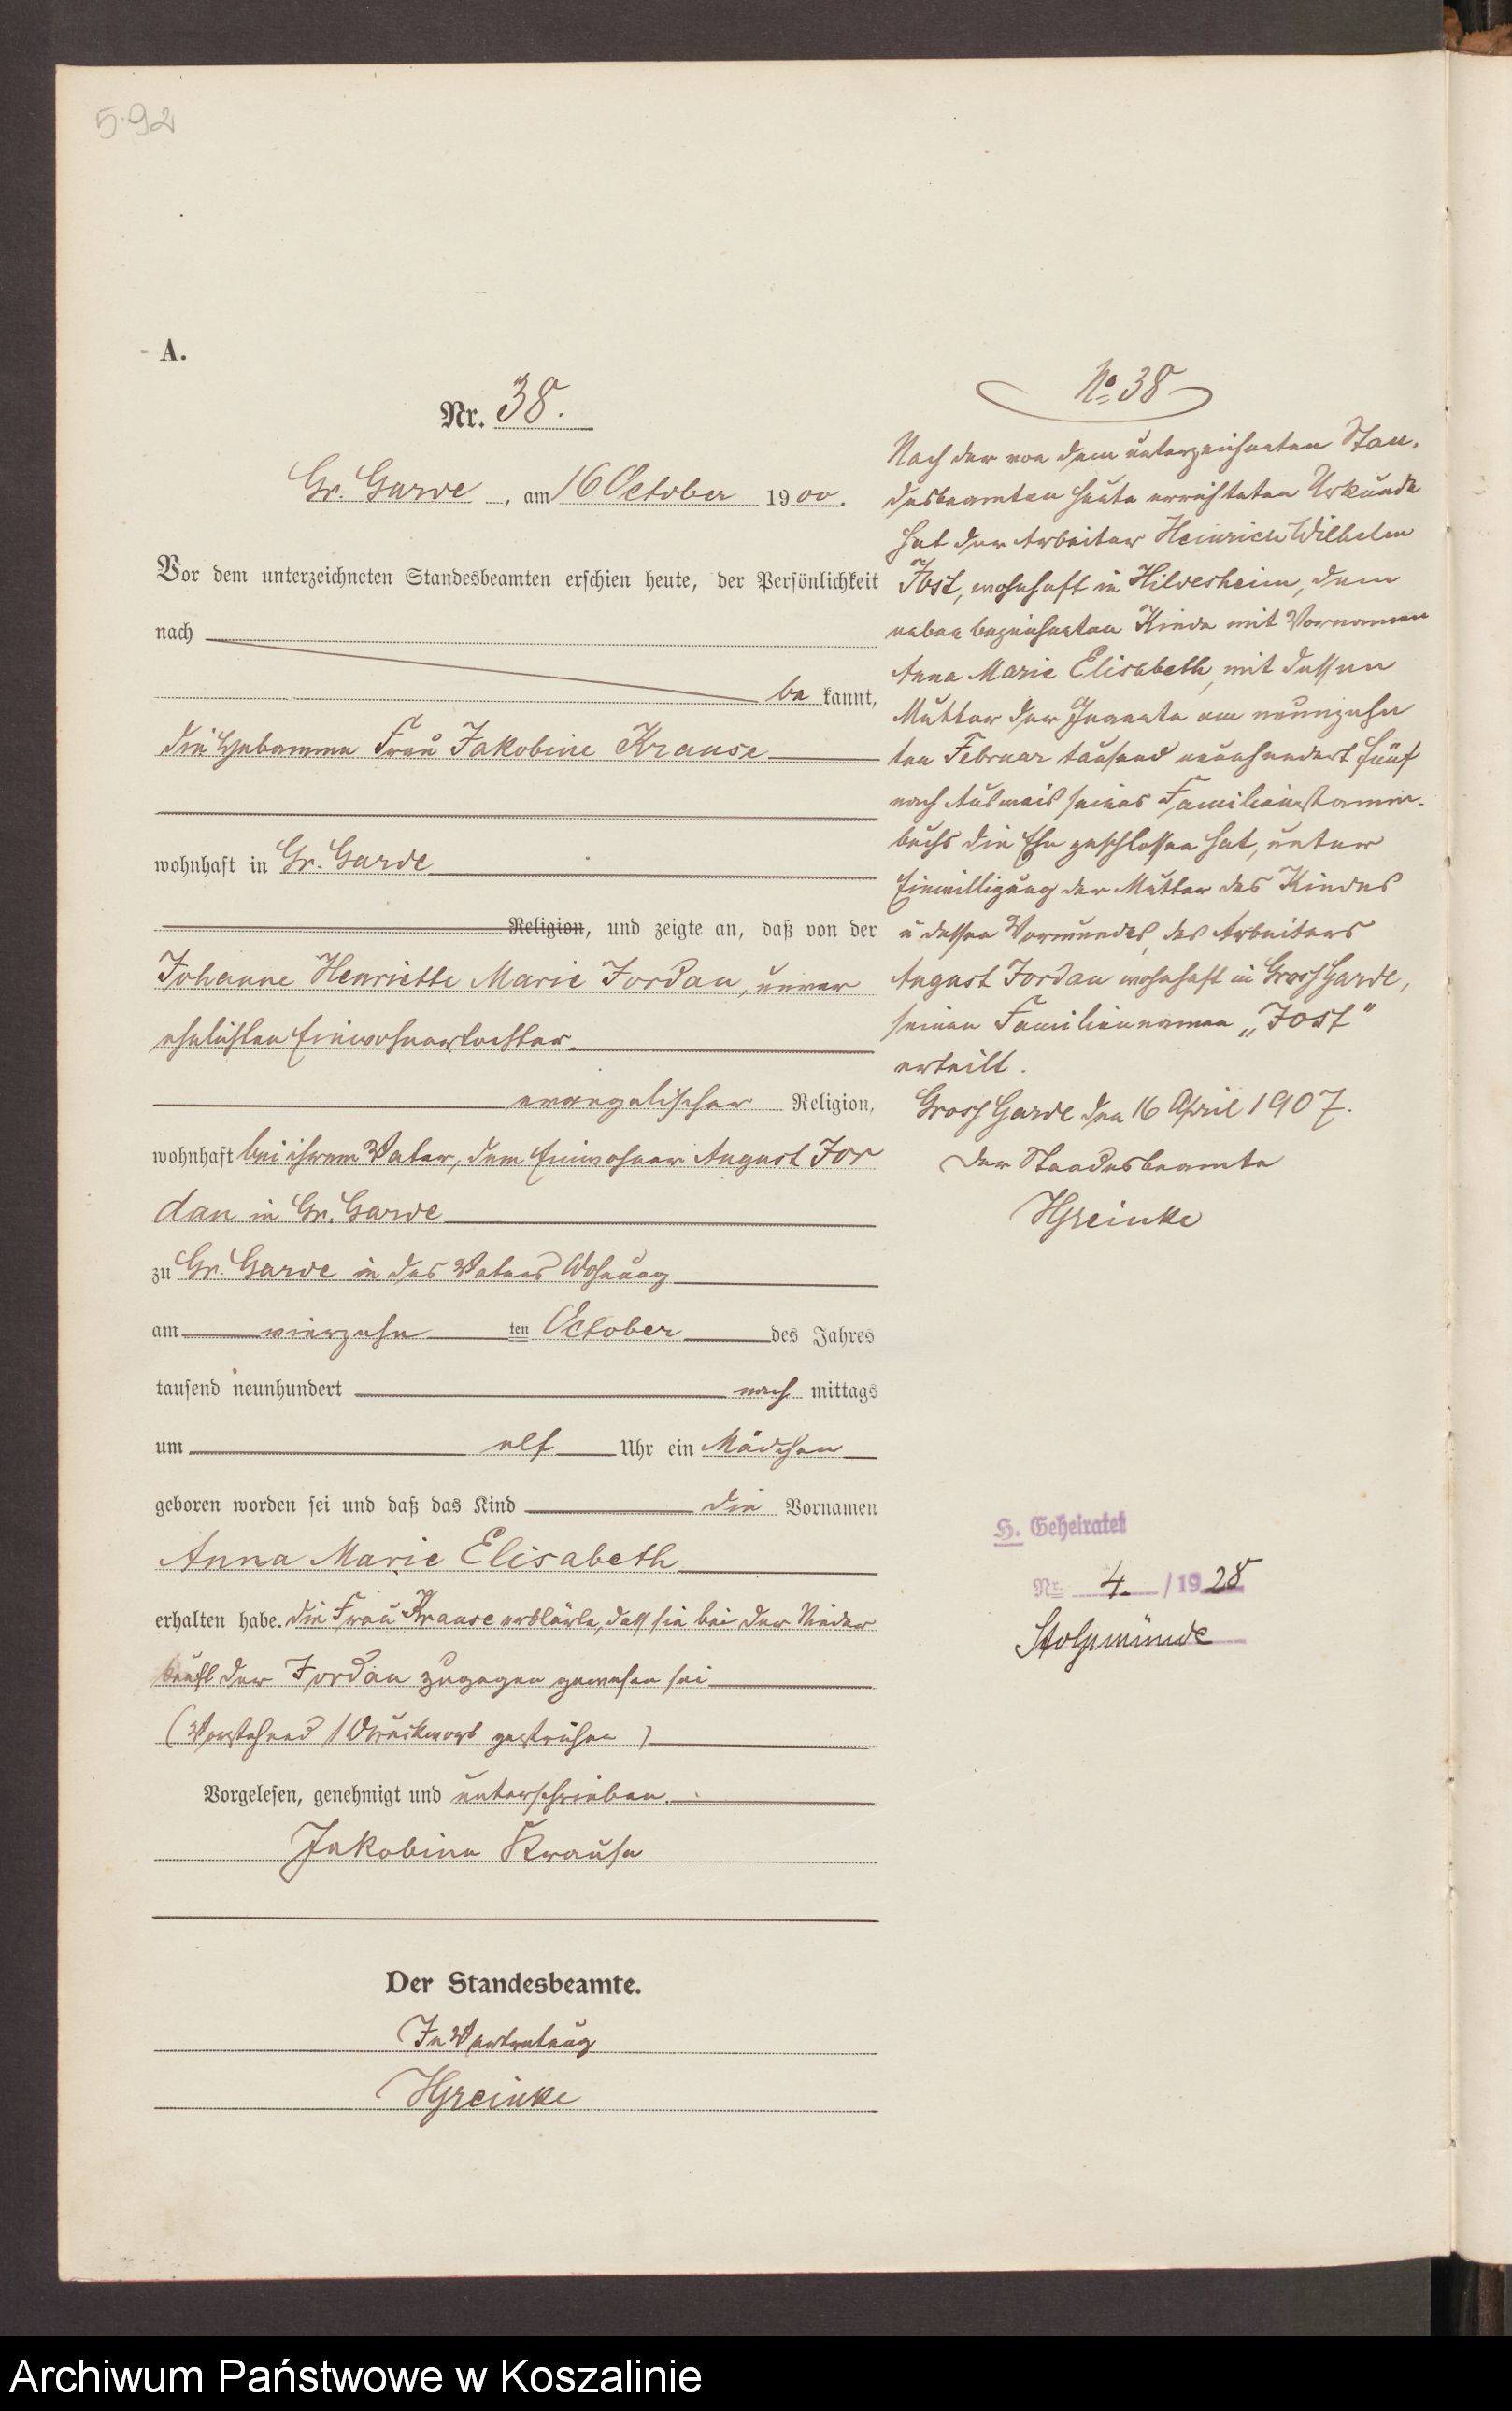 592
A.
Nr. 38.
Gr. Garde, am 16 October 1900.
Vor dem unterzeichneten Standesbeamten erschien heute, der Persönlichkeit
nach
be kannt,
die Hebamme Frau Jakobine Krause
wohnhaft in Gr. Garde
Religion, und zeigte an, daß von der
Johanne Henriette Marie Jordan, unver
ehelichten Einwohnertochter
evangelischer Religion,
wohnhaft bei ihrem Vater, dem Einwohner August Jor
dan in Gr. Garde
zu Gr. Garde in des Vaters Wohnung
am vierzehn ten October des Jahres
tausend neunhundert nach mittags
um elf Uhr ein Mädchen
geboren worden sei und daß das Kind die Vornamen
Anna Marie Elisabeth
erhalten habe. Die Frau Krause erklärte, daß sie bei der Nieder
kunft der Jordan zugegen gewesen sei
(Vorstehend 1 Druckwort gestrichen)
Vorgelesen, genehmigt und unterschrieben.
Jakobine Krause
Der Standesbeamte.
In Vertretung
HGreinke
No 38
Nach der von dem unterzeichneten Stan-
desbeamten heute errichteten Urkunde
hat der Arbeiter Heinrich Wilhelm
Jost, wohnhaft in Hildesheim, dem
neben bezeichneten Kinde mit Vornamen
Anna Marie Elisabeth, mit dessen
Mutter der Genannte am neunzehn
ten Februar tausend neunhundert fünf
nach Ausweis seines Familienstamm-
buchs die Ehe geschlossen hat, unter
Einwilligung der Mutter des Kindes
u dessen Vormundes, des Arbeiters
August Jordan wohnhaft in Groß Garde,
seinen Familiennamen „Jost“
erteilt.
Groß Garde den 16 April 1907.
Der Standesbeamte
HGreinke
H. Geheiratet
Nr. 4 / 1928
Stolpmünde
Archiwum Państwowe w Koszalinie